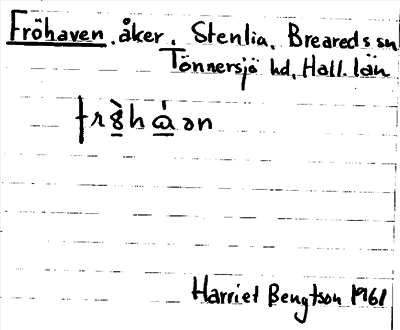 Fröhaven, åker, Stenlia, Breareds sn
Tönnersjö hd, Hall. län
Harriet Bengtson 1961